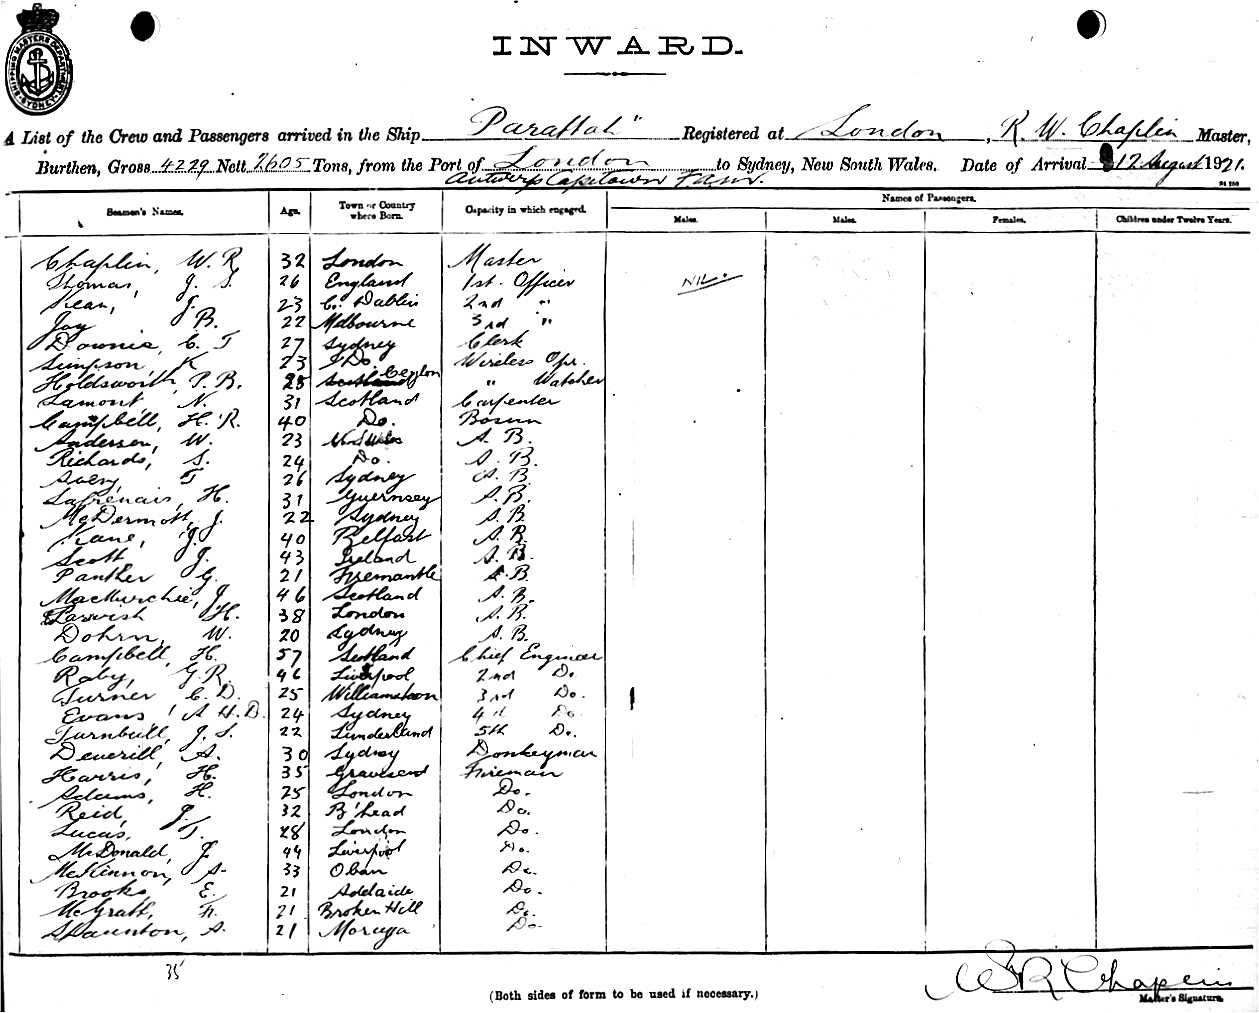 SHIPPING MASTERS DEPARTMENT SYDNEY
INWARD.
A List of the Crew and Passengers arrived in the Ship "Parattah" Registered at London, R. W. Chaplin Master,
Burthen, Gross 4229 Nett 2605 Tons, from the Port of London to Sydney, New South Wales. Date of Arrival 12 August 1921.
Antwerp Capetown
Seamen's Names. Age. Town or Country where Born. Capacity in which engaged. Names of Passengers.
Males. Males. Females. Children under Twelve Years.
Chaplin, W. R. 32 London Master
Thomas, J. S. 26 England 1st. Officer NIL.
J. 23 Co. Dublin 2nd "
Joy B. 22 Melbourne 3rd "
Downie, C. T 27 Sydney Clerk
Simpson, K 23 Do. Wireless Opr.
Holdsworth, P. B. 25 Ceylon " Watcher
Lamont N. 31 Scotland Carpenter
Campbell, H. R. 40 Do. Bosun
Anderson, W. 23 A. B.
Richards, S. 24 Do. A. B.
Avery, T 26 Sydney A. B.
Lafrenais, H. 31 Guernsey A. B.
McDermott, J. 22 Sydney A. B
Kane, J. 40 Belfast A. B.
Scott J. 43 Ireland A. B.
Panther G. 21 Fremantle A. B.
MacMurchie, J. 46 Scotland A. B.
H. 38 London A. B.
Dohrn, W. 20 Sydney A. B.
Campbell, H. 57 Scotland Chief Engineer
Raby, G. R. 46 Liverpool 2nd Do.
Turner C. D. 25 Williamstown 3rd Do.
Evans, A H. D. 24 Sydney 4th Do.
Turnbull, J. S. 22 Sunderland 5th Do.
Deverill, A. 30 Sydney Donkeyman
Harris, H. 35 Gravesend Fireman
Adams, H. 25 London Do.
Reid, J. 32 B'head Do.
Lucas, T. 28 London Do.
McDonald, J. 44 Liverpool Do.
McKinnon, A. 33 Oban Do.
Brooks, E. 21 Adelaide Do.
McGrath, F. 21 Broken Hill Do.
Staunton, A. 21 Moruya Do.
35
W R Chaplin
(Both sides of form to be used if necessary.)
Master's Signature.